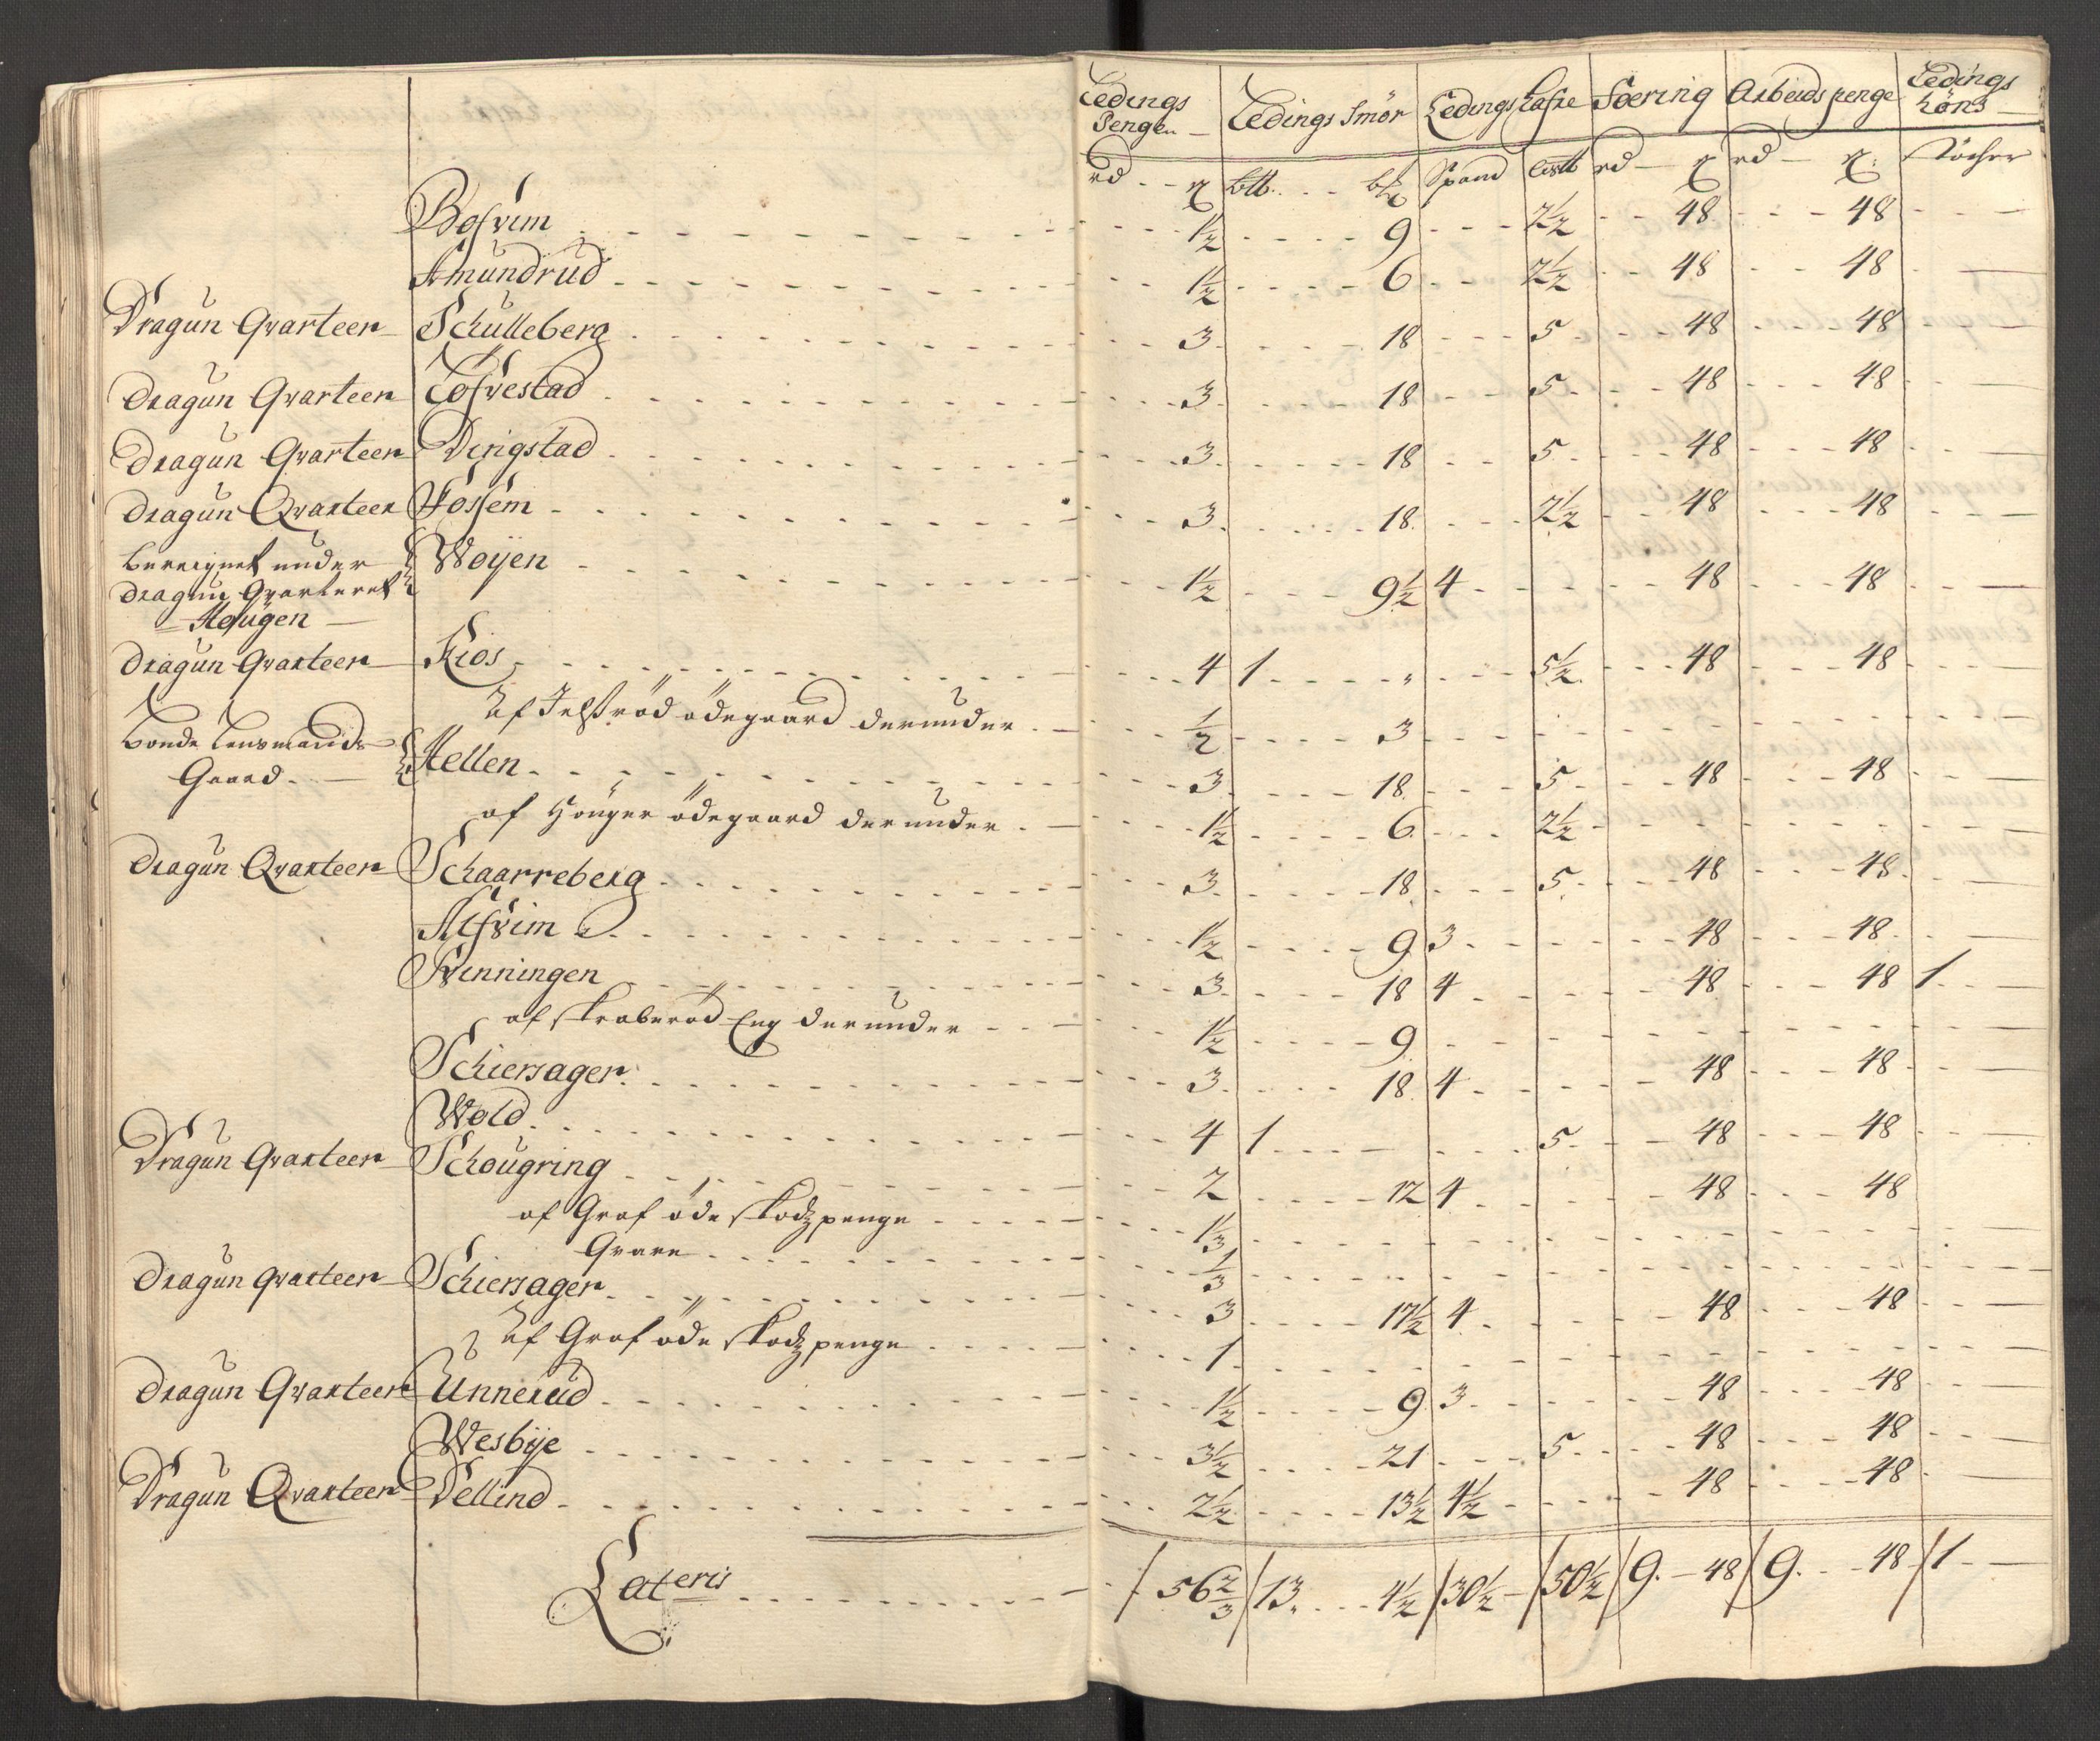 Ledings Penge Ledings Smör Ledings hafre Foering Arbeids penge Ledings höns
rd ß btb. btß Spand Cistb rd ß rd ß Söcher
Bosvim 1½ 9 2½ 48 48
Amundrud 1½ 6 2½ 48 48
Dragun Qvarteer Schulleberg 3 18 5 48 48
Dragun Qvarteer Tosvestad 3 18 5 48 48
Dragun Qvarteer Derigstad 3 18 5 48 48
Dragun Qvarteer Fossem 3 18 2½ 48 48
bereignet under Dragun Qvarteret Hougen Woÿen 1½ 9½ 4 48 48
Dragun Qvarteer Kios 4 1 " 5½ 48 48
Af Jelsröd ödegaard derunder ½ 3
Bonde Lensmands Gaard Hellen 3 18 5 48 48
af Houger ödegaard derunder 1½ 6 2½
Dragun Qvarteer Schaarreberg 3 18 5 48 48
Alfvim 1½ 9 3 48 48
Svenningen 3 18 4 48 48 1
af Skraberöd Eng derunder 1½ 9
Schiersager 3 18 4 48 48
Wold 4 1 5 48 48
Dragun Qvarteer Schougring 2 12 4 48 48
af Graf öde skodz penge 1⅓
Qvare ⅓
Dragun Qvarteer Schiersager 3 17½ 4 48 48
Af Graf öde skodz penge 1
Dragun Qvarteer Unnerud 1½ 9 3 48 48
Wesbÿe 3½ 21 5 48 48
Dragun Qvarteer Dellind 2½ 13½ 4½ 48 48
Lateris 56⅔ 13 4½ 30½ 50½ 9 48 9 48 1